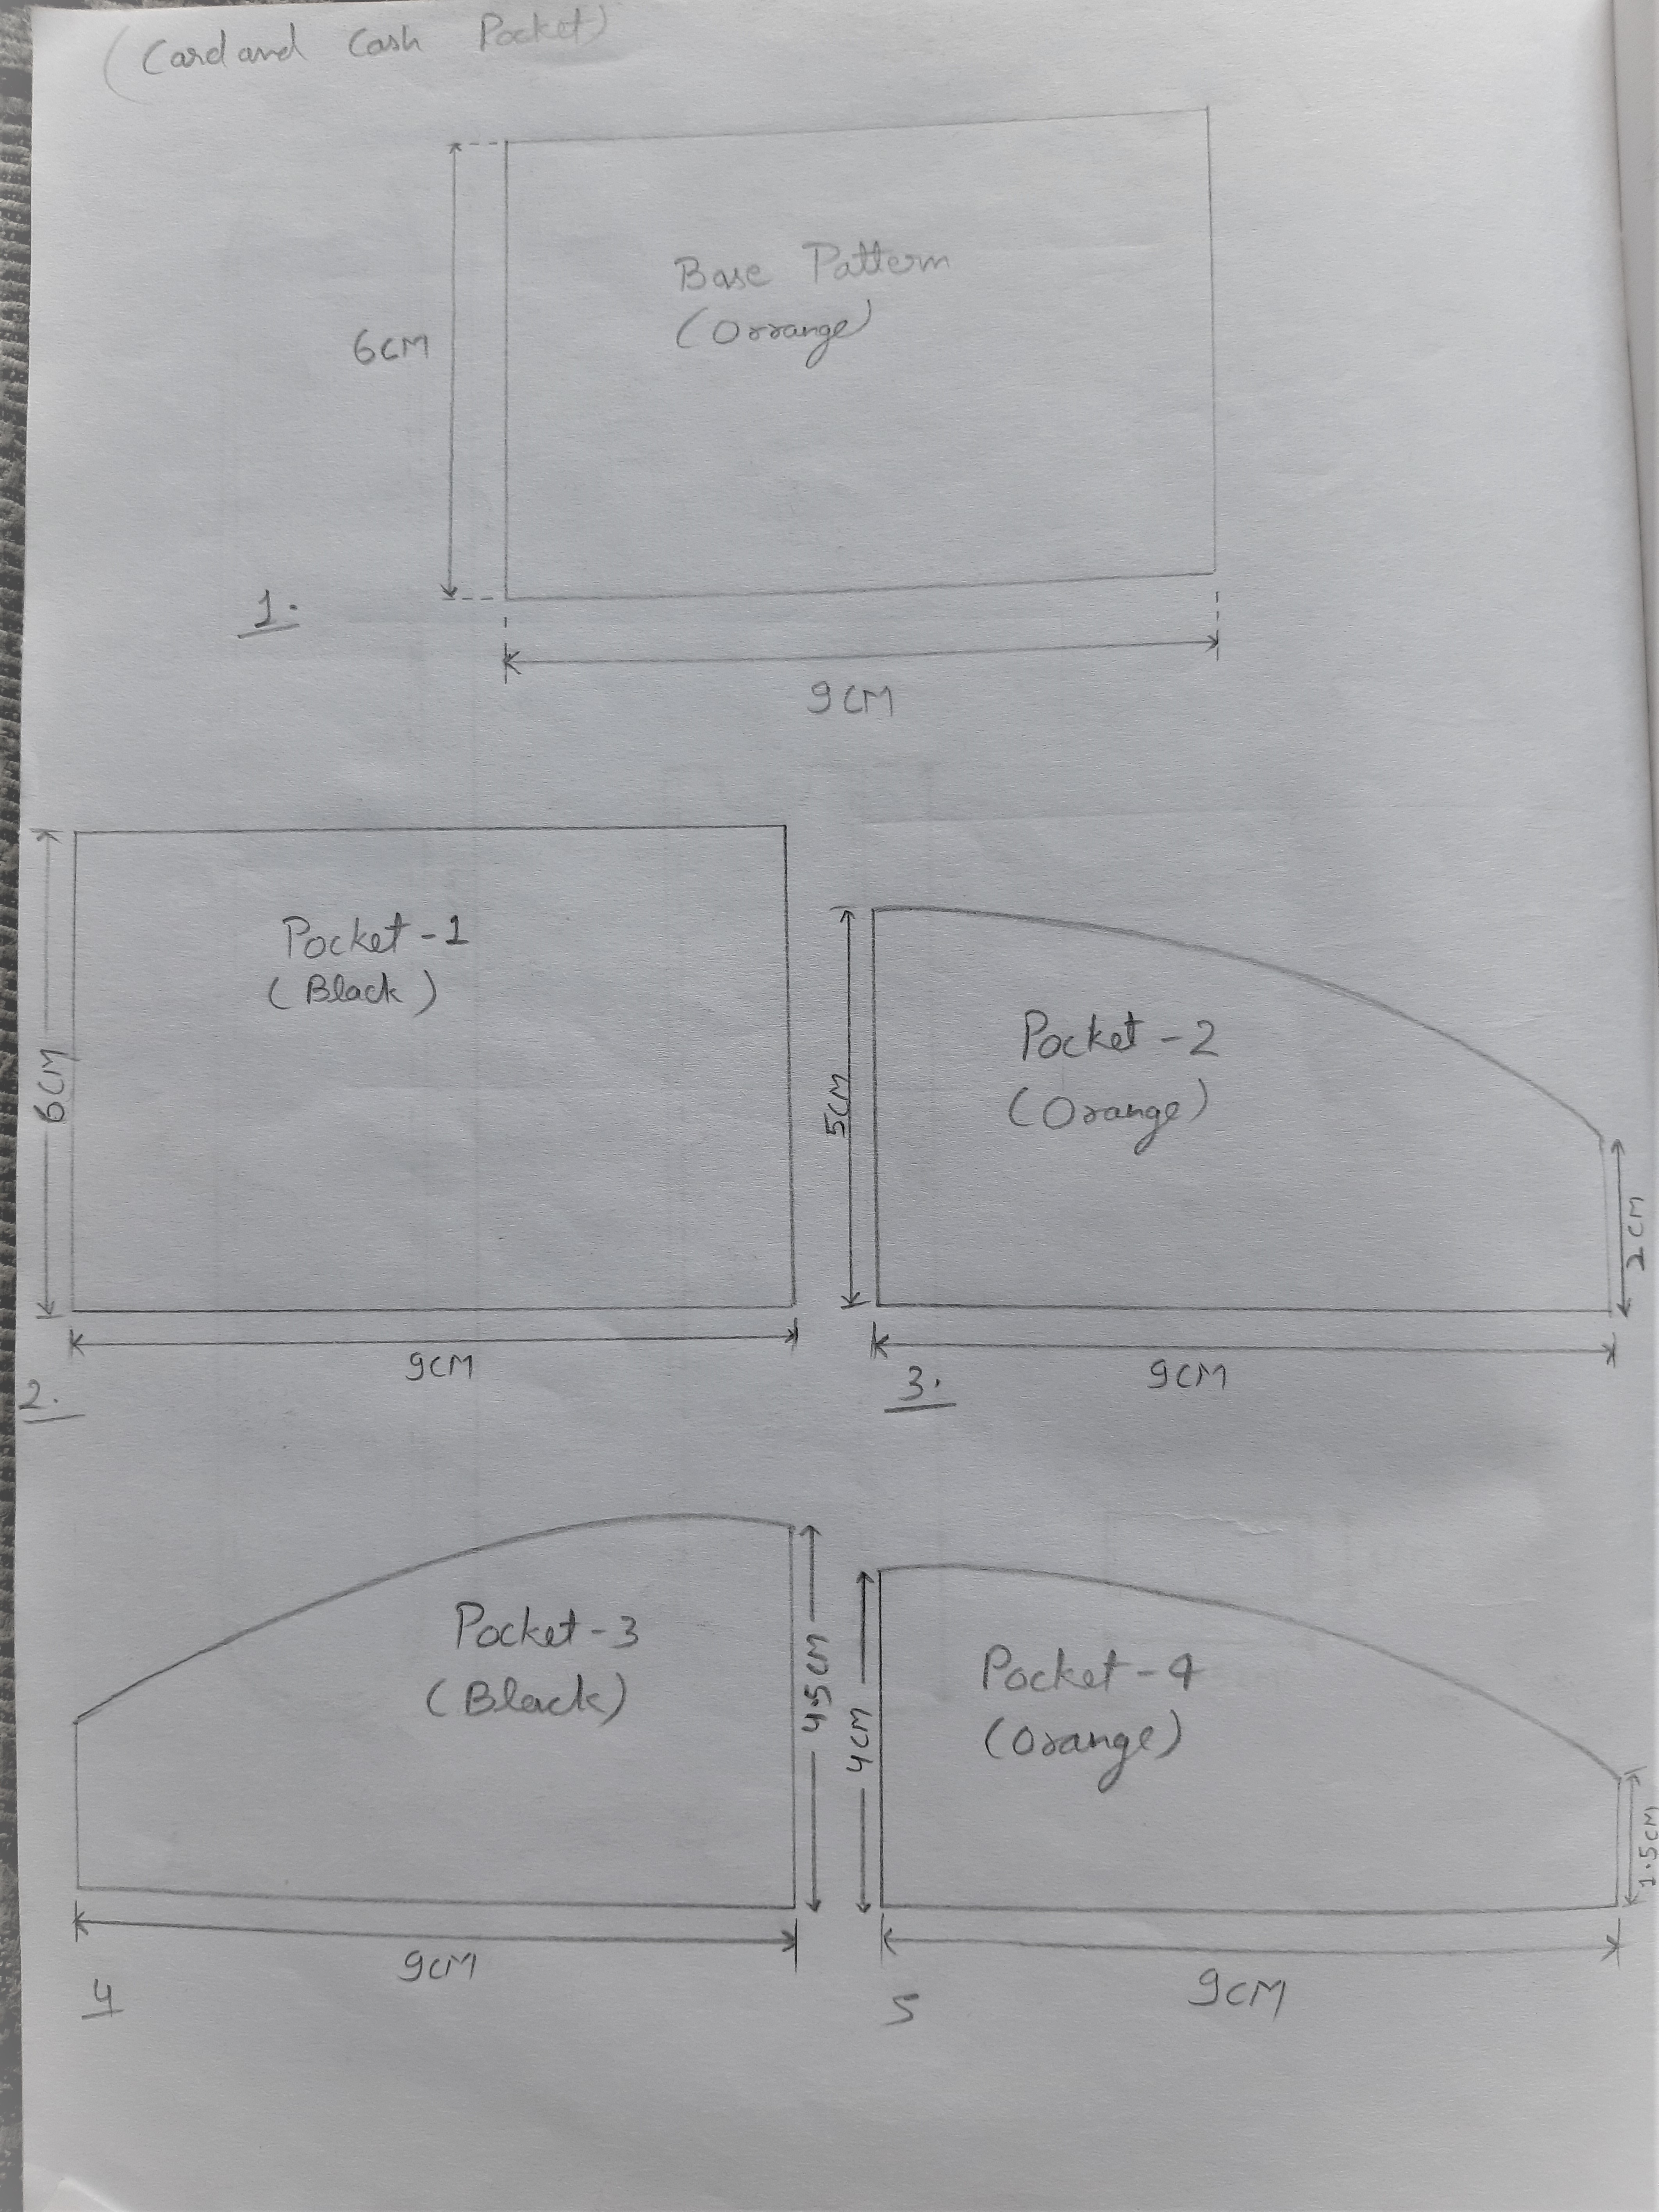 (Card and Cash Pocket)
Base Pattern
(Orrange)
6CM
1.
9CM
Pocket-1
(Black)
6CM
9CM
2.
Pocket-2
(Orange)
5CM
2CM
9CM
3.
Pocket-3
(Black)
4.5CM
9CM
4
Pocket-4
(Orange)
4CM
1.5CM
9CM
5